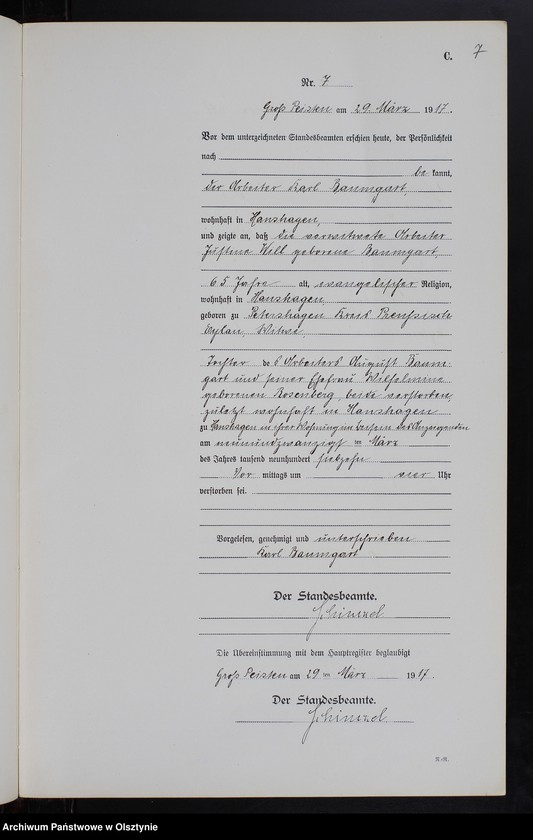 C. 7
Nr. 7
Groß Peisten am 29. März 1917.
Vor dem unterzeichneten Standesbeamten erschien heute, der Persönlichkeit
nach
be kannt,
der Arbeiter Karl Baumgart,
wohnhaft in Hanshagen,
und zeigte an, daß die verwitwete Arbeiter
Justine Will geborene Baumgart,
65 Jahre alt, evangelischer Religion,
wohnhaft in Hanshagen,
geboren zu Petershagen Kreis Preussisch
Eylau, Witwe,
Tochter des Arbeiters August Baum-
gart und seiner Ehefrau Wilhelmine
geborenen Rosenberg, beide verstorben,
zuletzt wohnhaft in Hanshagen
zu Hanshagen in ihrer Wohnung im Beisein des Anzeigenden
am neunundzwanzigst en März
des Jahres tausend neunhundert siebzehn
Vor mittags um vier Uhr
verstorben sei.
Vorgelesen, genehmigt und unterschrieben
Karl Baumgart
Der Standesbeamte.
Schimzel
Die Übereinstimmung mit dem Hauptregister beglaubigt
Groß Peisten am 29 ten März 1917.
Der Standesbeamte.
Schimzel
Archiwum Państwowe w Olsztynie